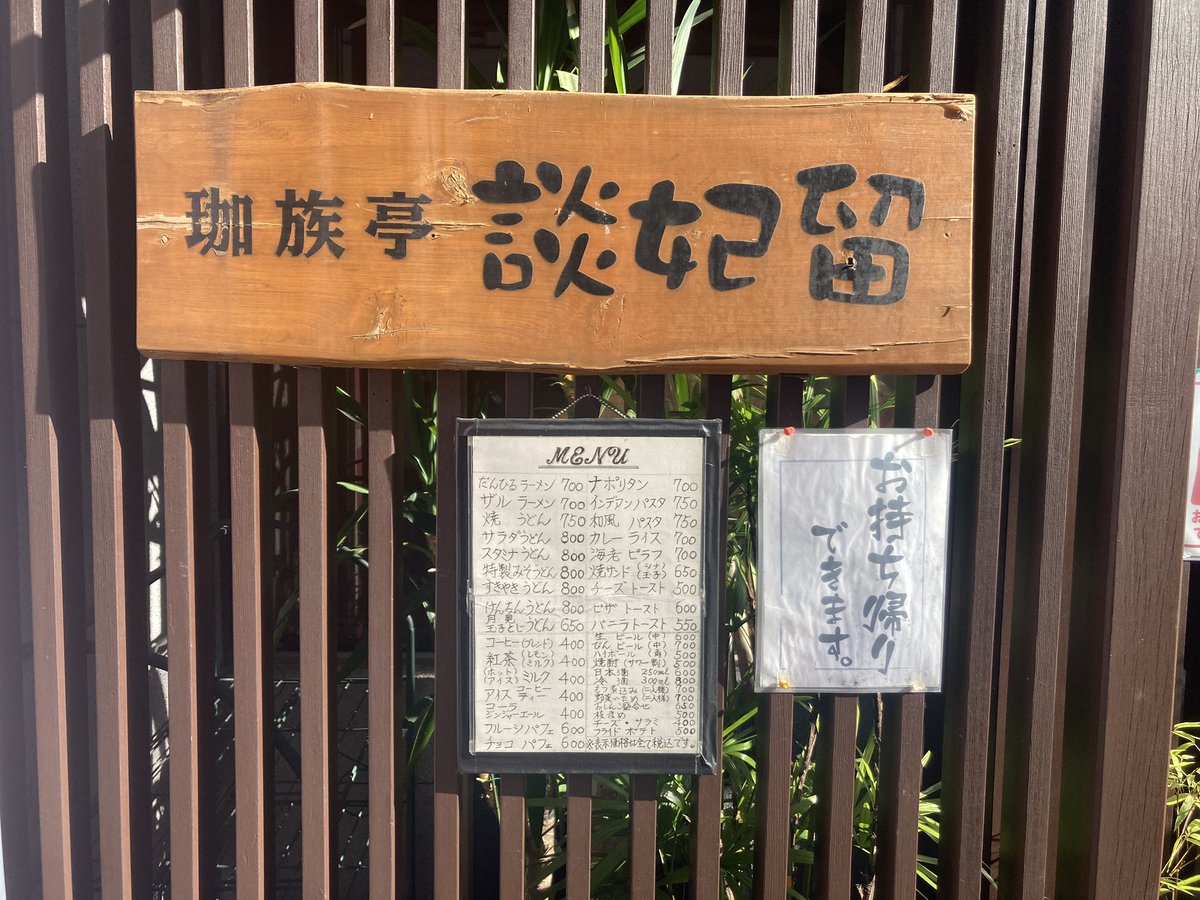 珈族亭 談妃留
MENU
だんひるラーメン 700
ザル ラーメン 700
焼 うどん 750
サラダうどん 800
スタミナうどん 800
特製みそうどん 800
すきやきうどん 800
けんちんうどん 800
月見
玉子とじうどん 650
コーヒー(ブレンド) 400
紅茶(レモン)(ミルク) 400
(ホット)(アイス)ミルク 400
アイス コーヒー ティー 400
コーラ
ジンジャーエール 400
フルーツパフェ 600
チョコ パフェ 600
ナポリタン 700
インデアンパスタ 750
和風 パスタ 750
カレーライス 700
海老ピラフ 700
焼サンド(シナ)(玉子) 650
チーズトースト 500
ピザトースト 600
バニラトースト 550
生 ビール(中) 600
びんビール(中) 700
ハイボール(角) 500
焼酎(サワー割) 500
日本酒 250ml 600
冷 酒 300ml 800
もつ煮込み(二人様) 700
野菜いため(二人様) 700
おしんこ盛合せ 650
枝まめ 500
チーズ・サラミ 400
フライドポテト 500
※表示価格は全て税込です。
お持ち帰り
できます。